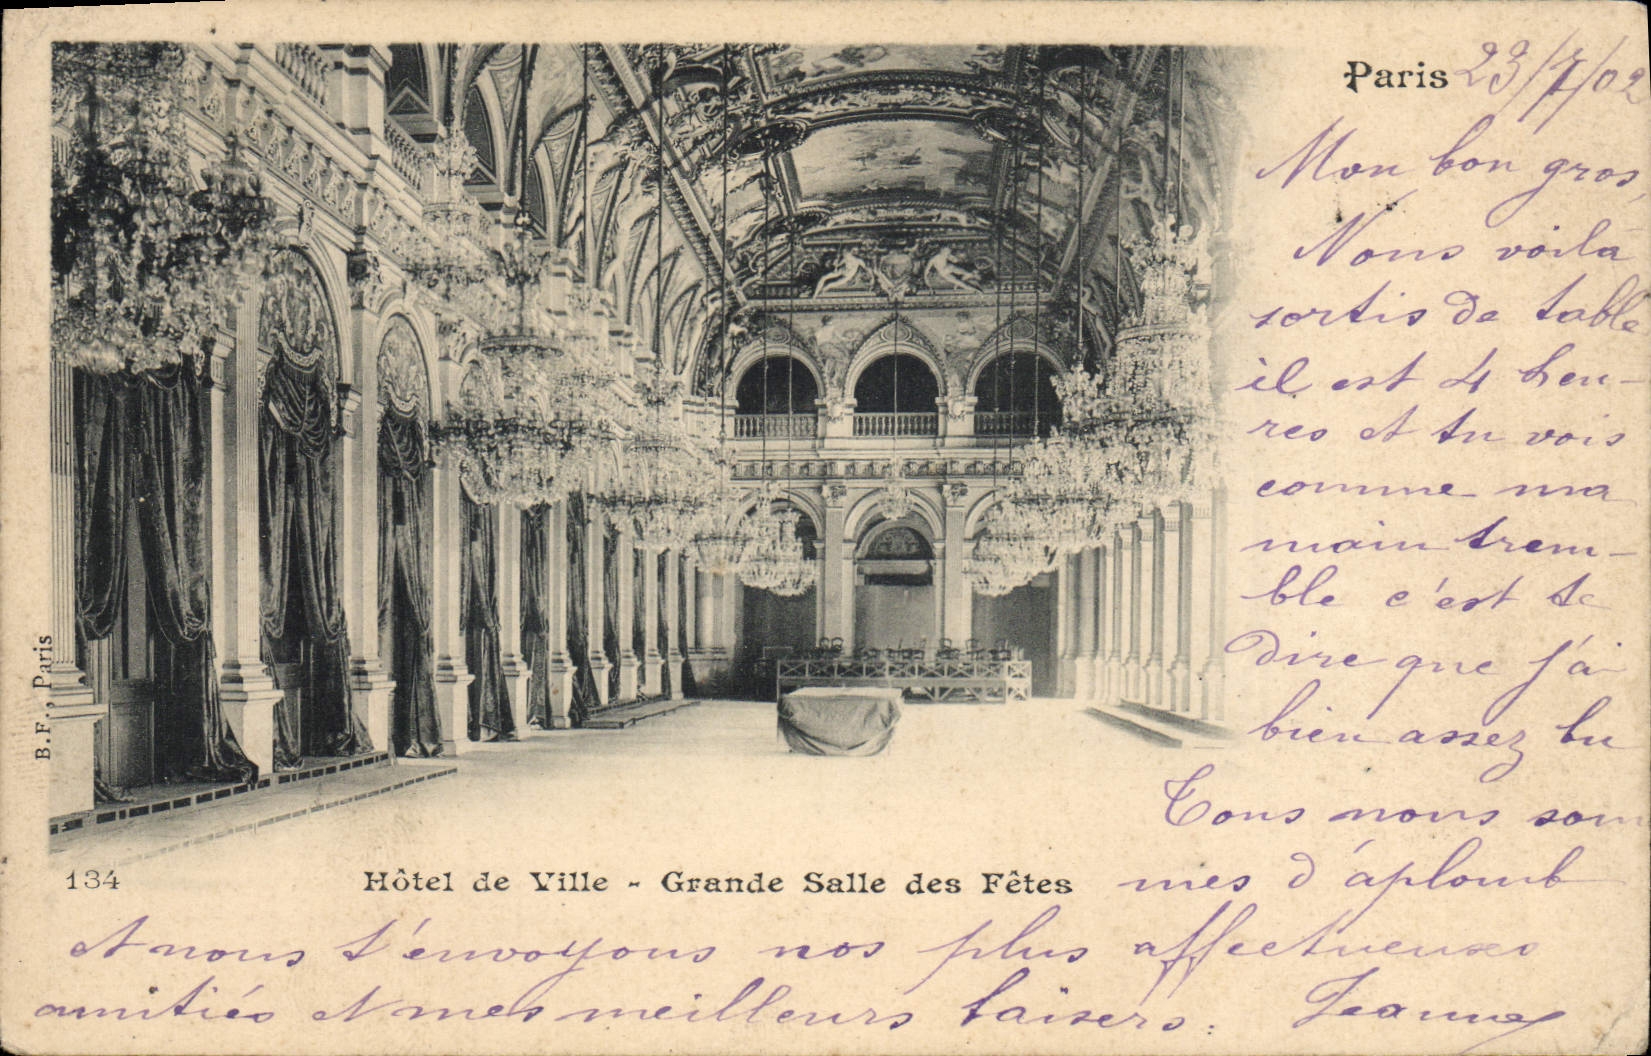 Paris 23/7/02
Mon bon gros,
Nous voilà
sortis de table
il est 4 heu-
res et tu vois
comme ma
main trem-
ble c'est te
dire que j'ai
bien assez bu
Tous nous som
mes d'aplomb
et nous t'envoyons nos plus affectueuses
amitiés et mes meilleurs baisers.
Jeanne
B.F., Paris
134
Hôtel de Ville - Grande Salle des Fêtes